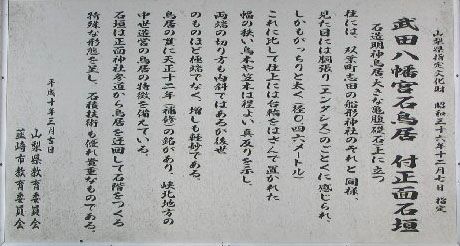 山梨県指定文化財 昭和三十六年十二月七日 指定
武田八幡宮石鳥居 付正面石垣
石造明神鳥居、大きな亀腹礎石上に立つ
柱には、双葉町志田の船形神社のそれと同様、
見た目には胴張り(エンタシス)のごとくに感じられ、
しかもがっちりと太く(径〇・四六メートル)
これに比して柱上には台輪をはさんで置かれた
幅の狭い島木や笠木は程よい真反りを示し、
両端の切り方も内斜ではあるが後世
のものほど極端でなく、増しも軽妙である。
鳥居の裏に天正十二年(補修)の銘があり、峡北地方の
中世遺宮の鳥居の特徴を備えている。
石垣は正面神社参道から鳥居を迂回して石階をつくる
特殊な形態を呈し、石積技術も優れ貴重なものである。
平成十年三月吉日
山梨県教育委員会
韮崎市教育委員会